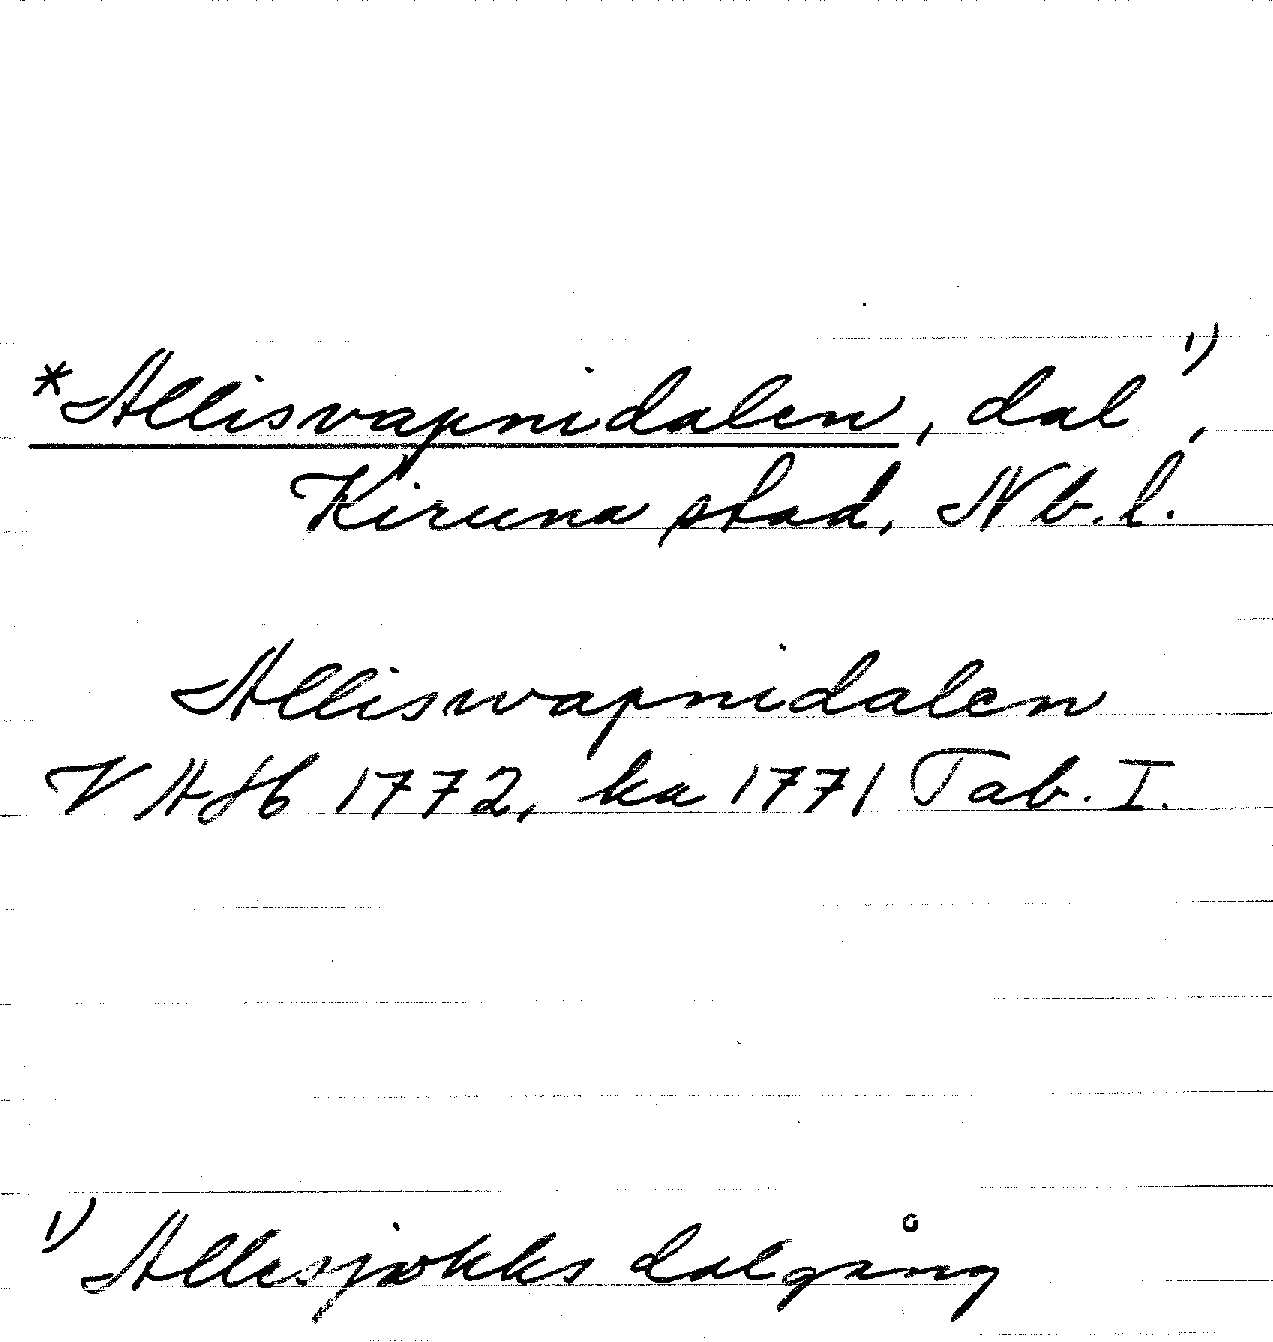 *Allisvapnidalen, dal ¹⁾,
Kiruna stad, Nb. l.
Alliswapnidalen
VAHb 1772, ka 1771 Tab. I.
¹⁾ Allesjokks dalgång